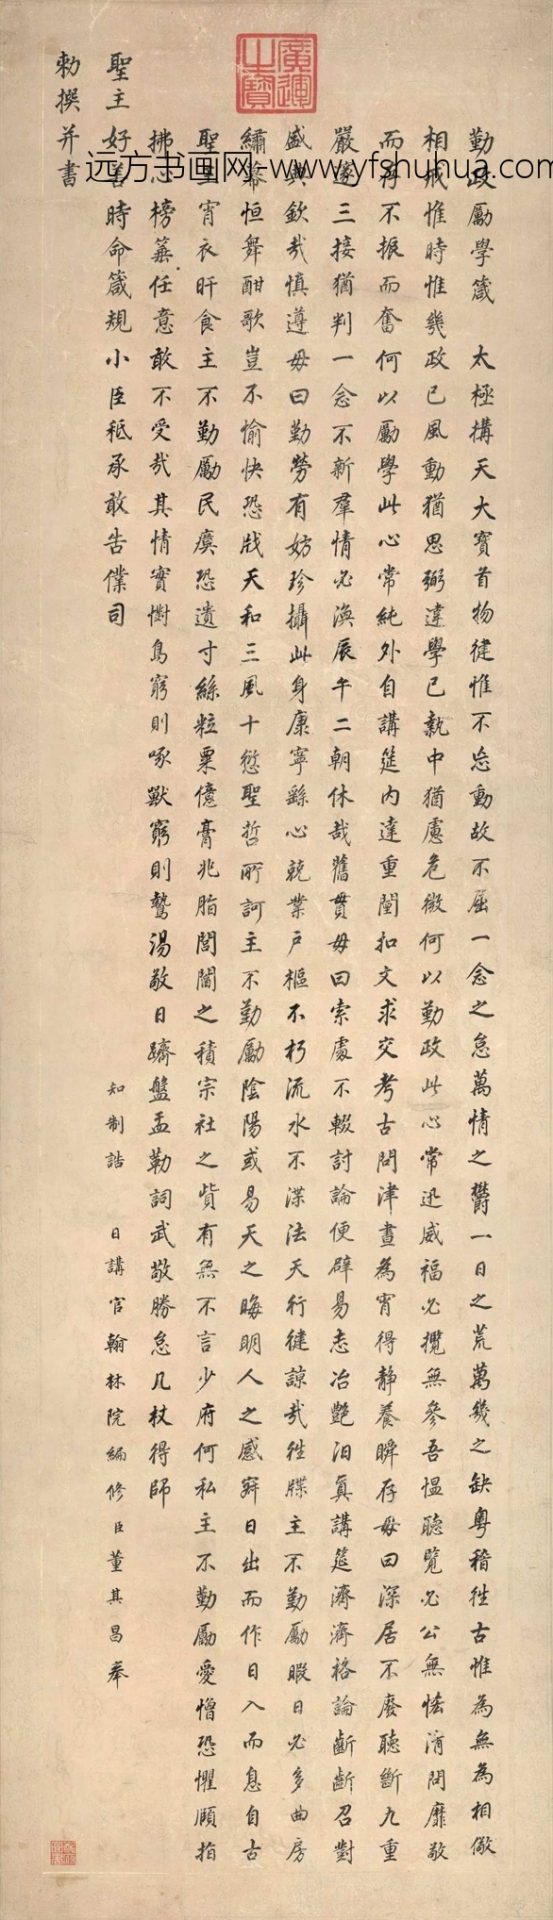 廣運之寶
远方书画网-www.yfshuhua.com
勤政勵學箴 太極搆天大寶首物健惟不息動故不屈一念之怠萬情之欝一日之荒萬幾之缺粤稽徃古惟為無為相儆
相戒惟時惟幾政已風動猶思弼違學已執中猶慮危微何以勤政此心常迅威福必攬無參吾愠聽覽必公無恡清問靡敢
而荐不振而奮何以勵學此心常純外自講筵内達重闈扣文求交考古問津晝為宵得静養瞬存毋曰深居不廢聽斷九重
嚴邃三接猶判一念不新羣情必渙辰午二朝休哉舊貫毋曰索處不輟討論便辟易志冶艷汩真講筵濟濟格論齗齗召對
盛典欽哉慎遵毋曰勤勞有妨珍攝此身康寧繇心兢業户樞不朽流水不渫法天行健諒哉徃牒主不勤勵暇日必多曲房
繡幕恒舞酣歌豈不愉快恐戕天和三風十愆聖哲所訶主不勤勵陰陽或易天之晦明人之感寤日出而作日入而息自古
聖皇宵衣旰食主不勤勵民瘼恐遺寸絲粒粟億膏兆脂閭閻之積宗社之貲有無不言少府何私主不勤勵愛憎恐懼願指
拂心榜箠任意敢不受哉其情實懟鳥窮則啄獸窮則鷙湯敬日躋盤盂勒詞武敬勝怠几杖得師
聖主好善時命箴規小臣祗承敢告僕司
知制誥 日講官翰林院編修臣董其昌奉
勑撰并書